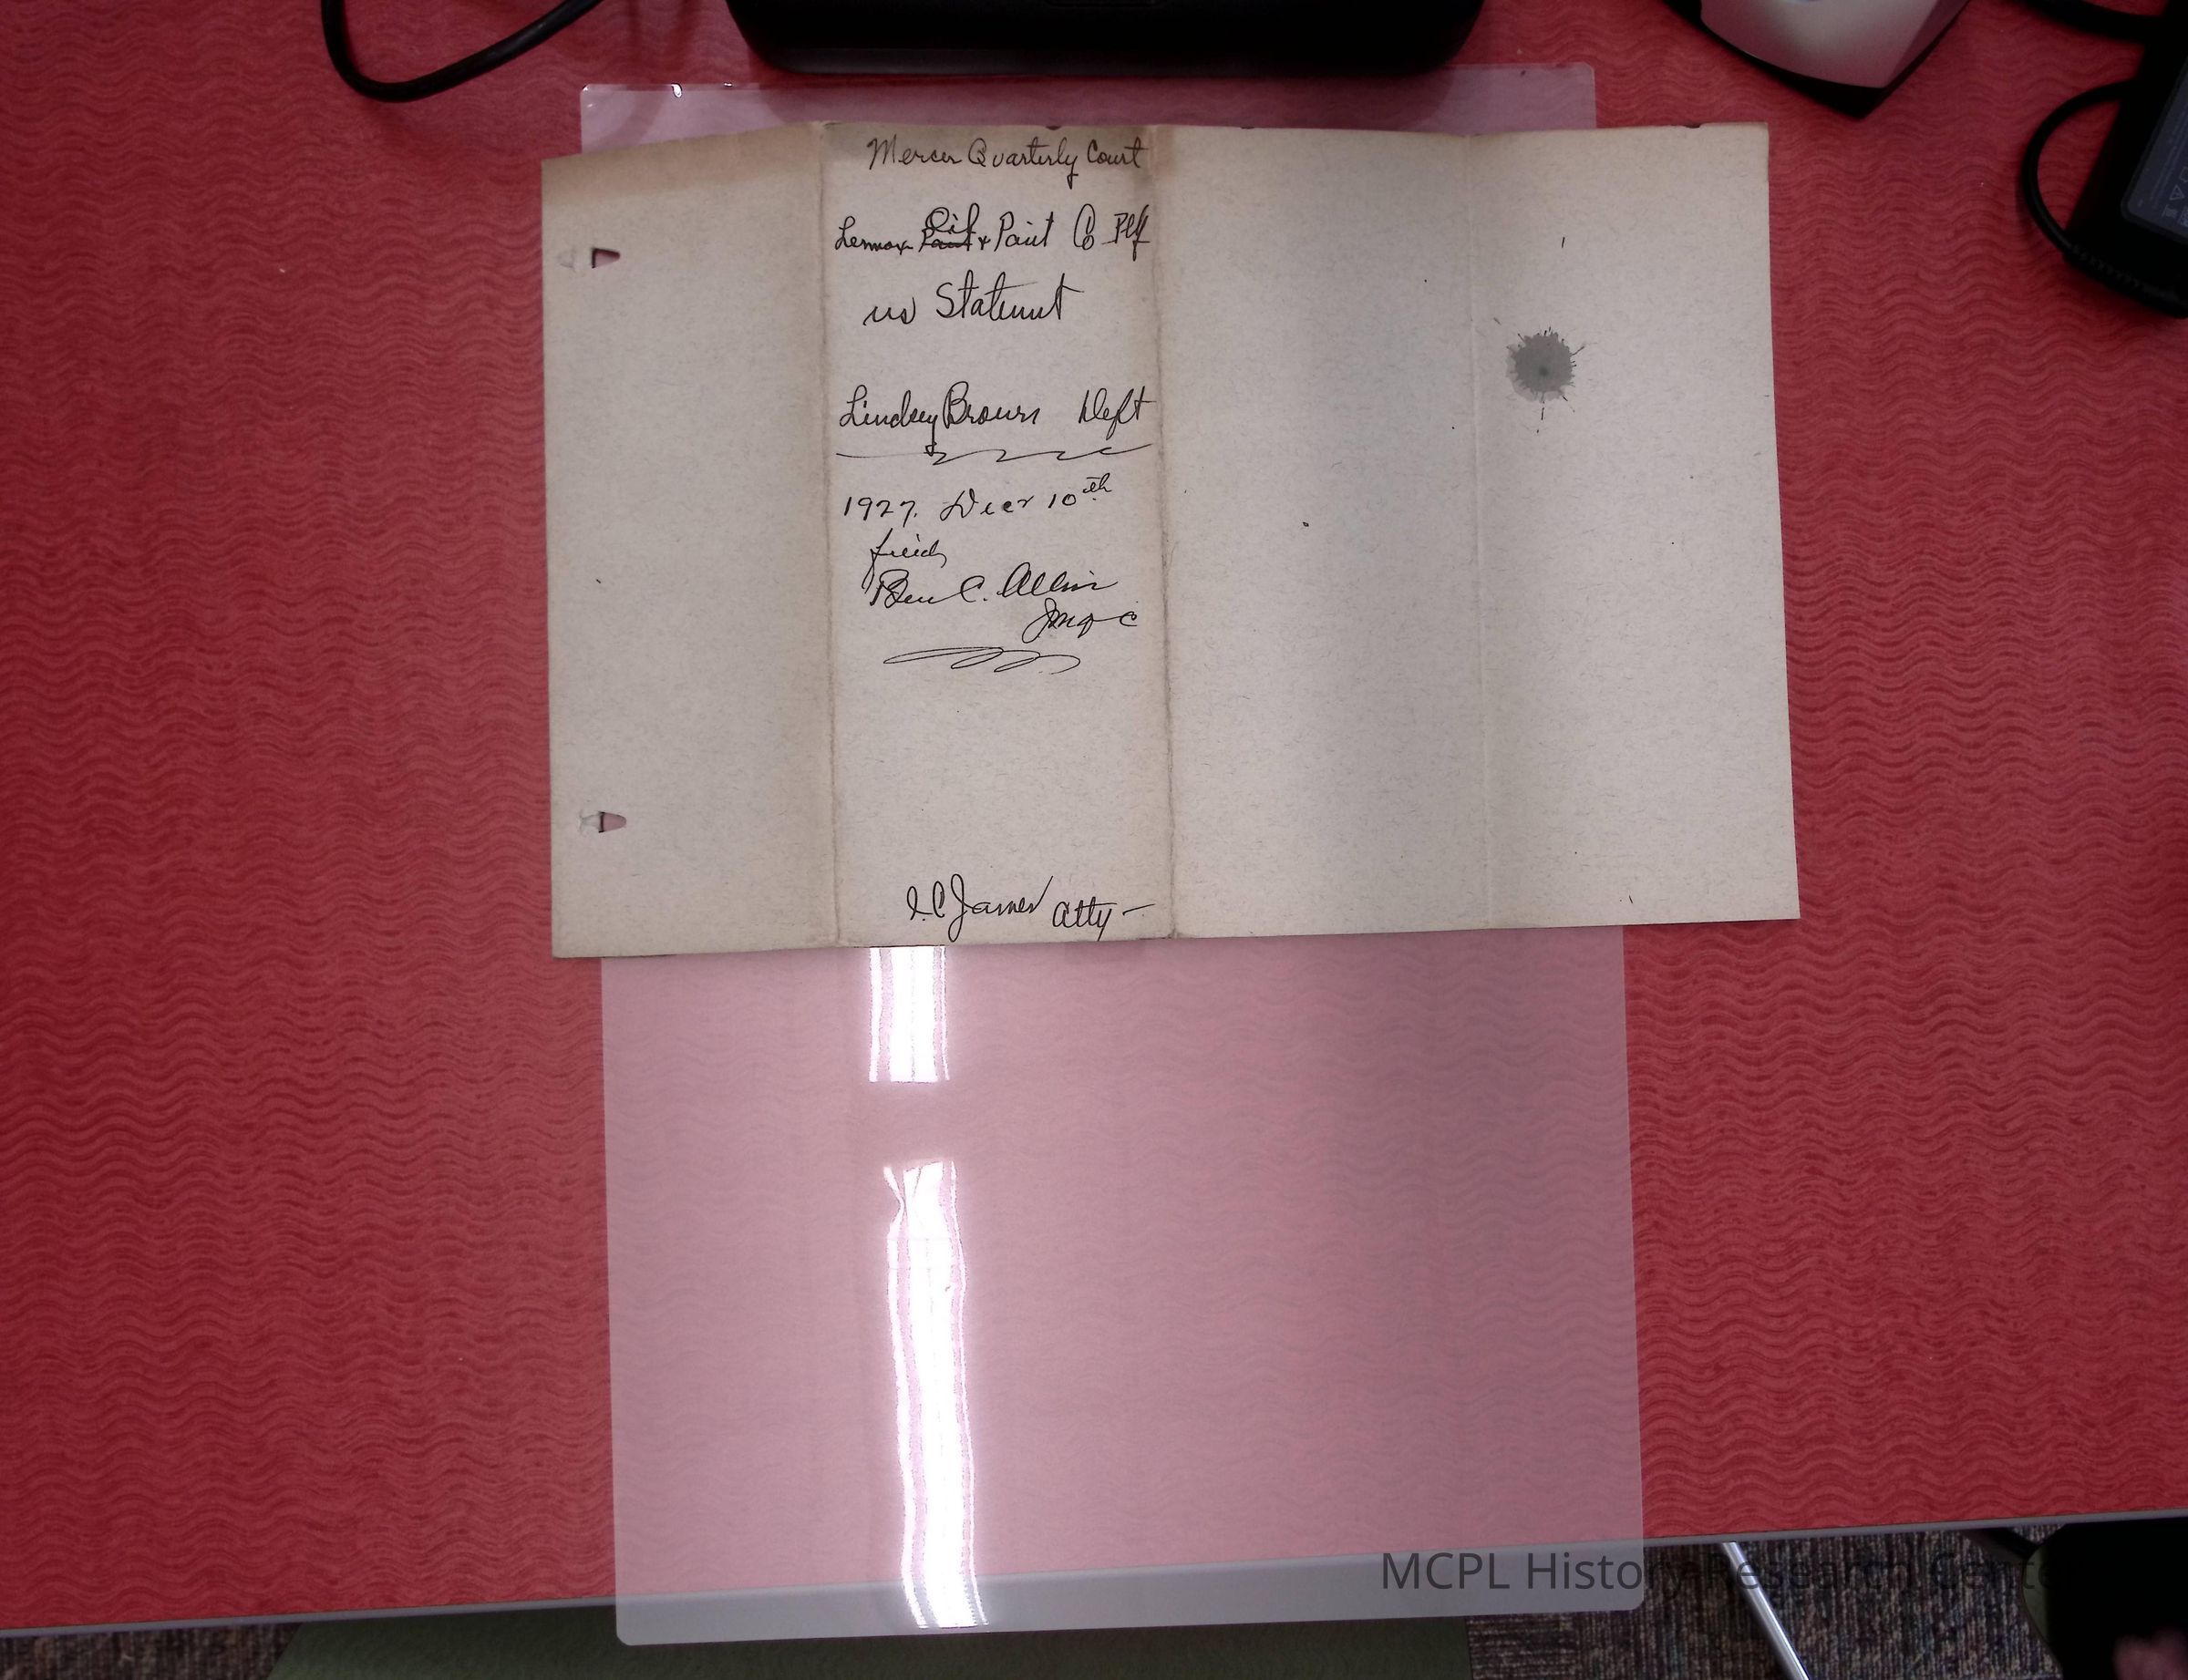 Mercer Quarterly Court
Lennox Oil & Paint Co Plf
vs Statement
Lindsey Brown Deft
1927. Decr 10th
filed,
Ben C. Allin
JMQC
I.C. James Atty -
MCPL History Research Cente